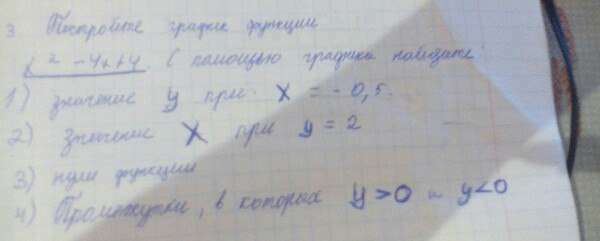 3 Постройте график функции
x² - 4x+4. С помощью графика найдите
1) значение y при x = - 0,5.
2) значение x при y = 2
3) нули функции
4) Промежутки, в которых y>0 и y<0